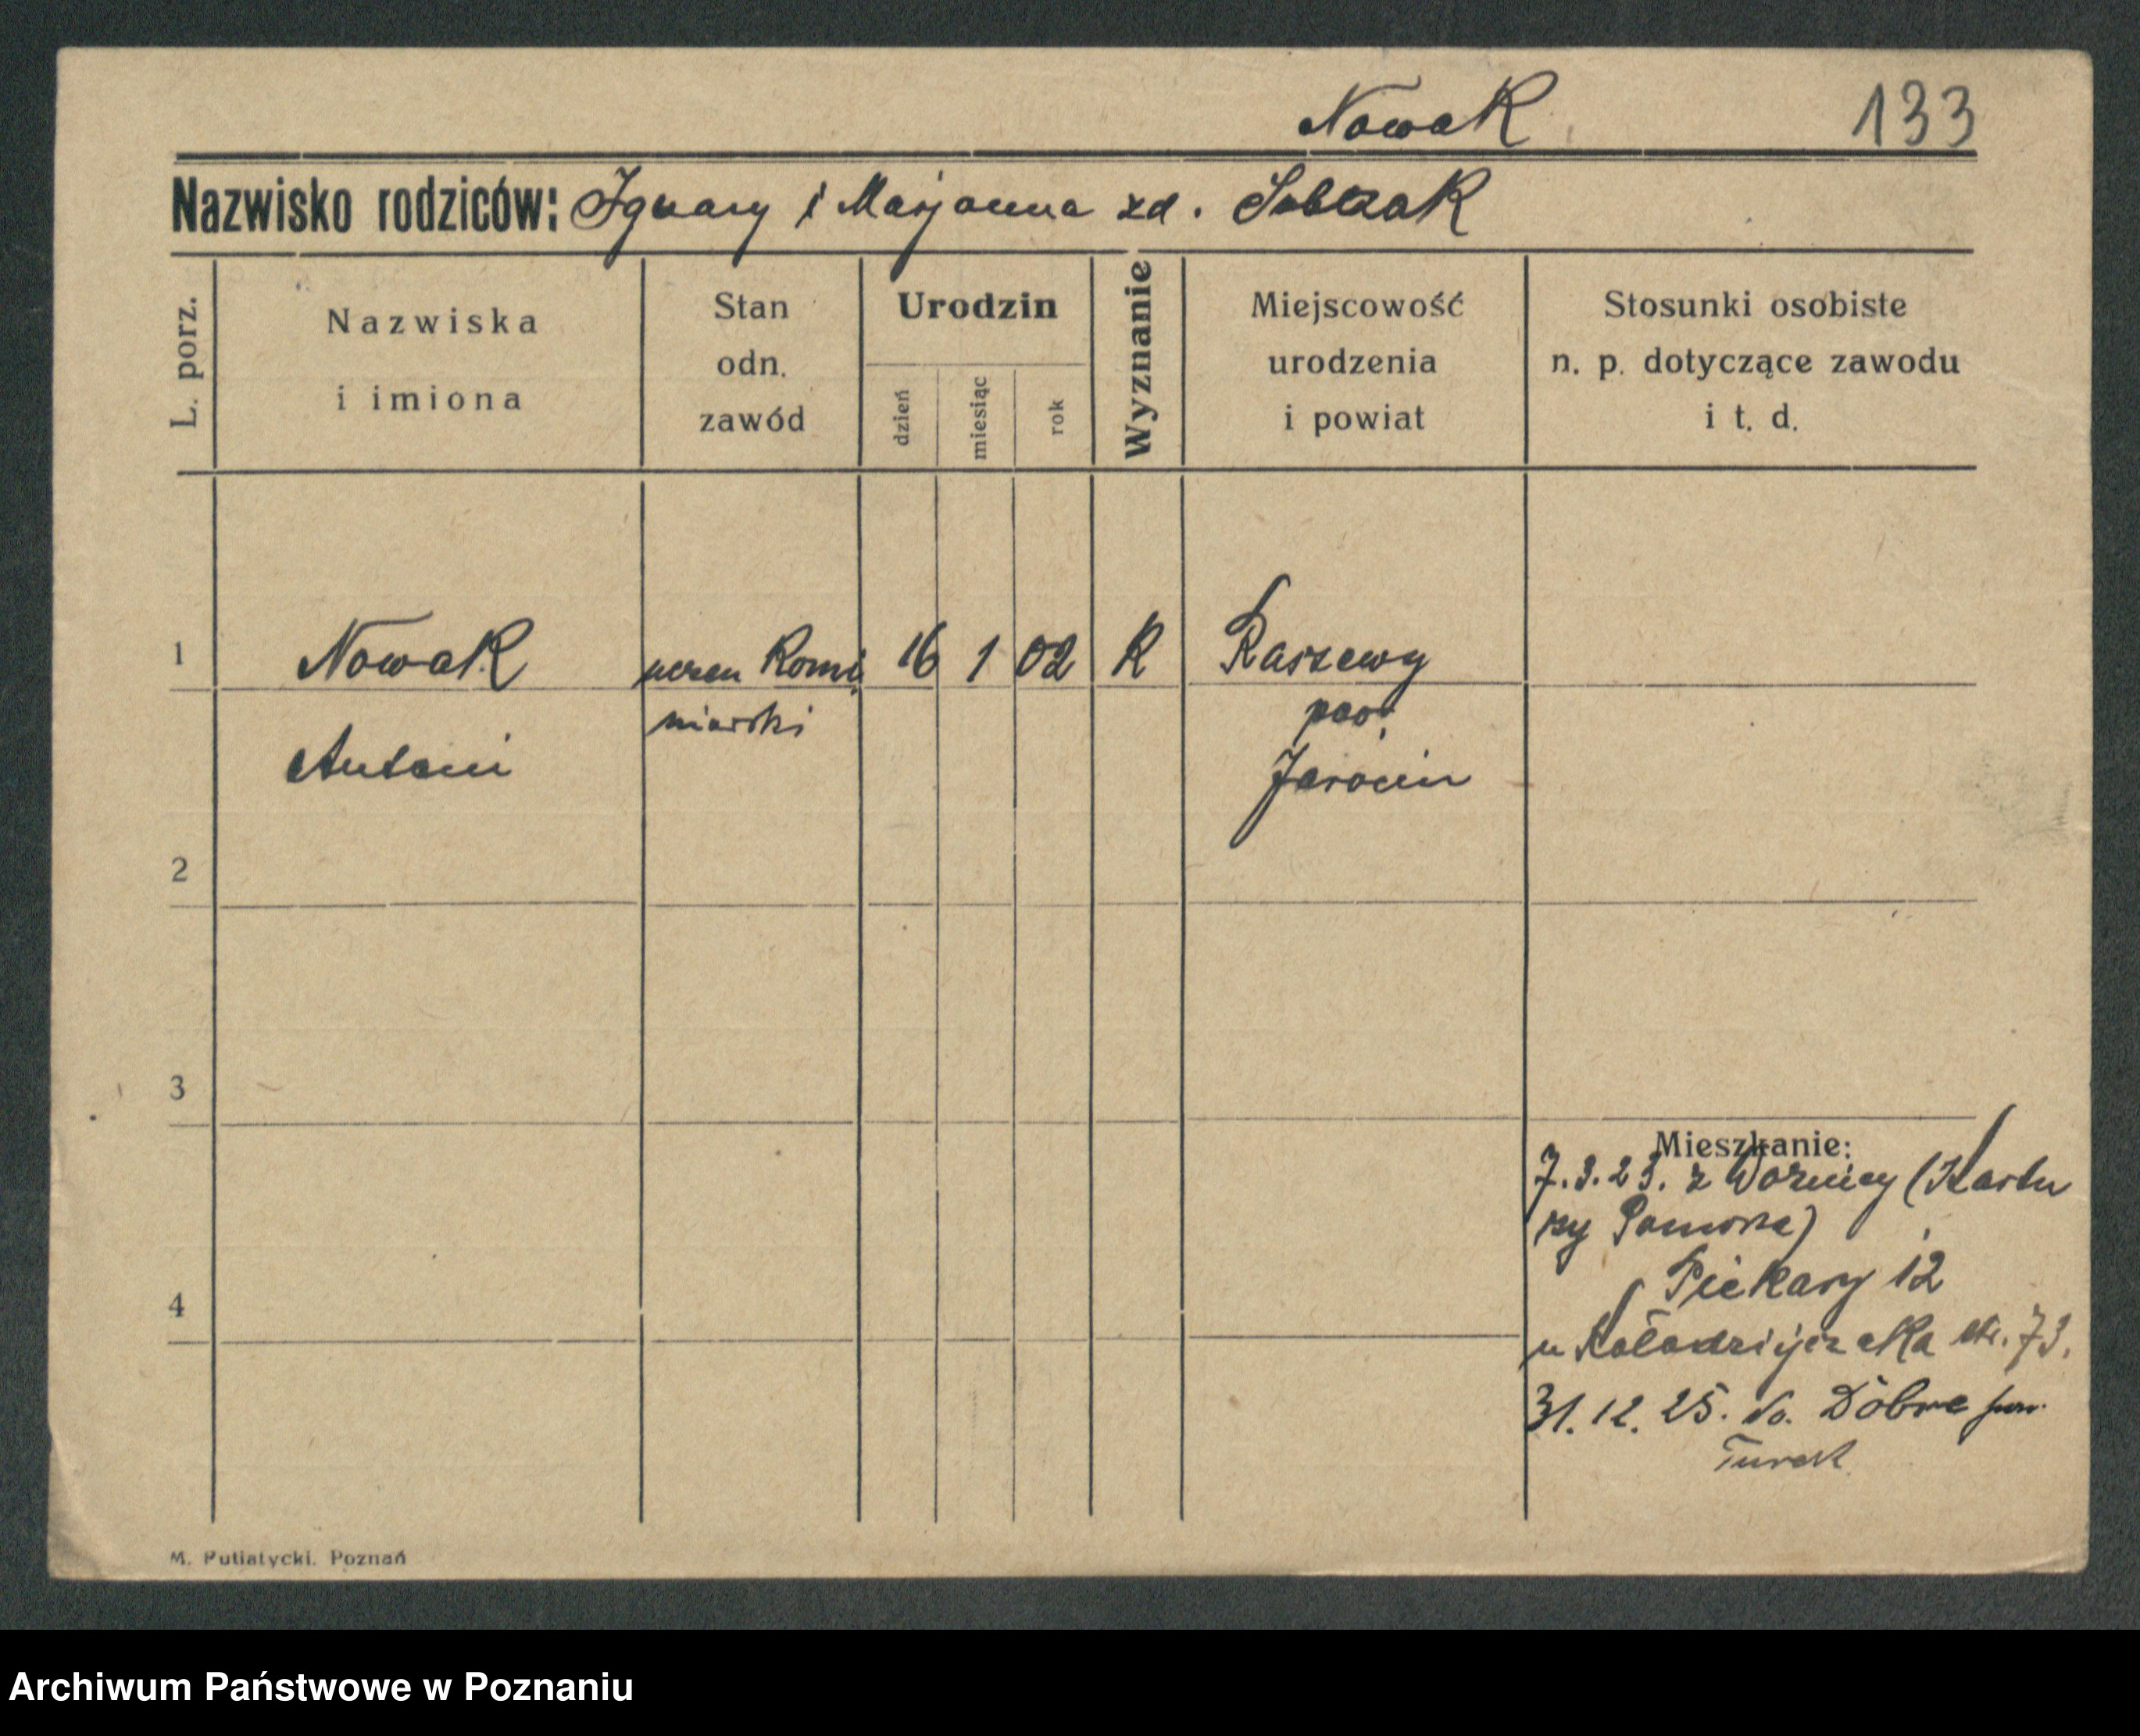 Nowak 133
Nazwisko rodziców: Ignacy i Marjanna zd. Sobczak
L. porz.
Nazwiska
i imiona
Stan
odn.
zawód
Urodzin
dzień
miesiąc
rok
Wyznanie
Miejscowość
urodzenia
i powiat
Stosunki osobiste
n. p. dotyczące zawodu
i t. d.
1 Nowak uczeń Komi 16 1 02 K Raszewy
niarski pow.
Antoni Jarocin
2
3
Mieszkanie:
7.3.23. z (Kartu
zy Pomorze)
4 Piekary 12
u Kołodziejczaka 73.
31.12.25. do Dobre pow.
Turek
M. Putiatycki. Poznań
Archiwum Państwowe w Poznaniu